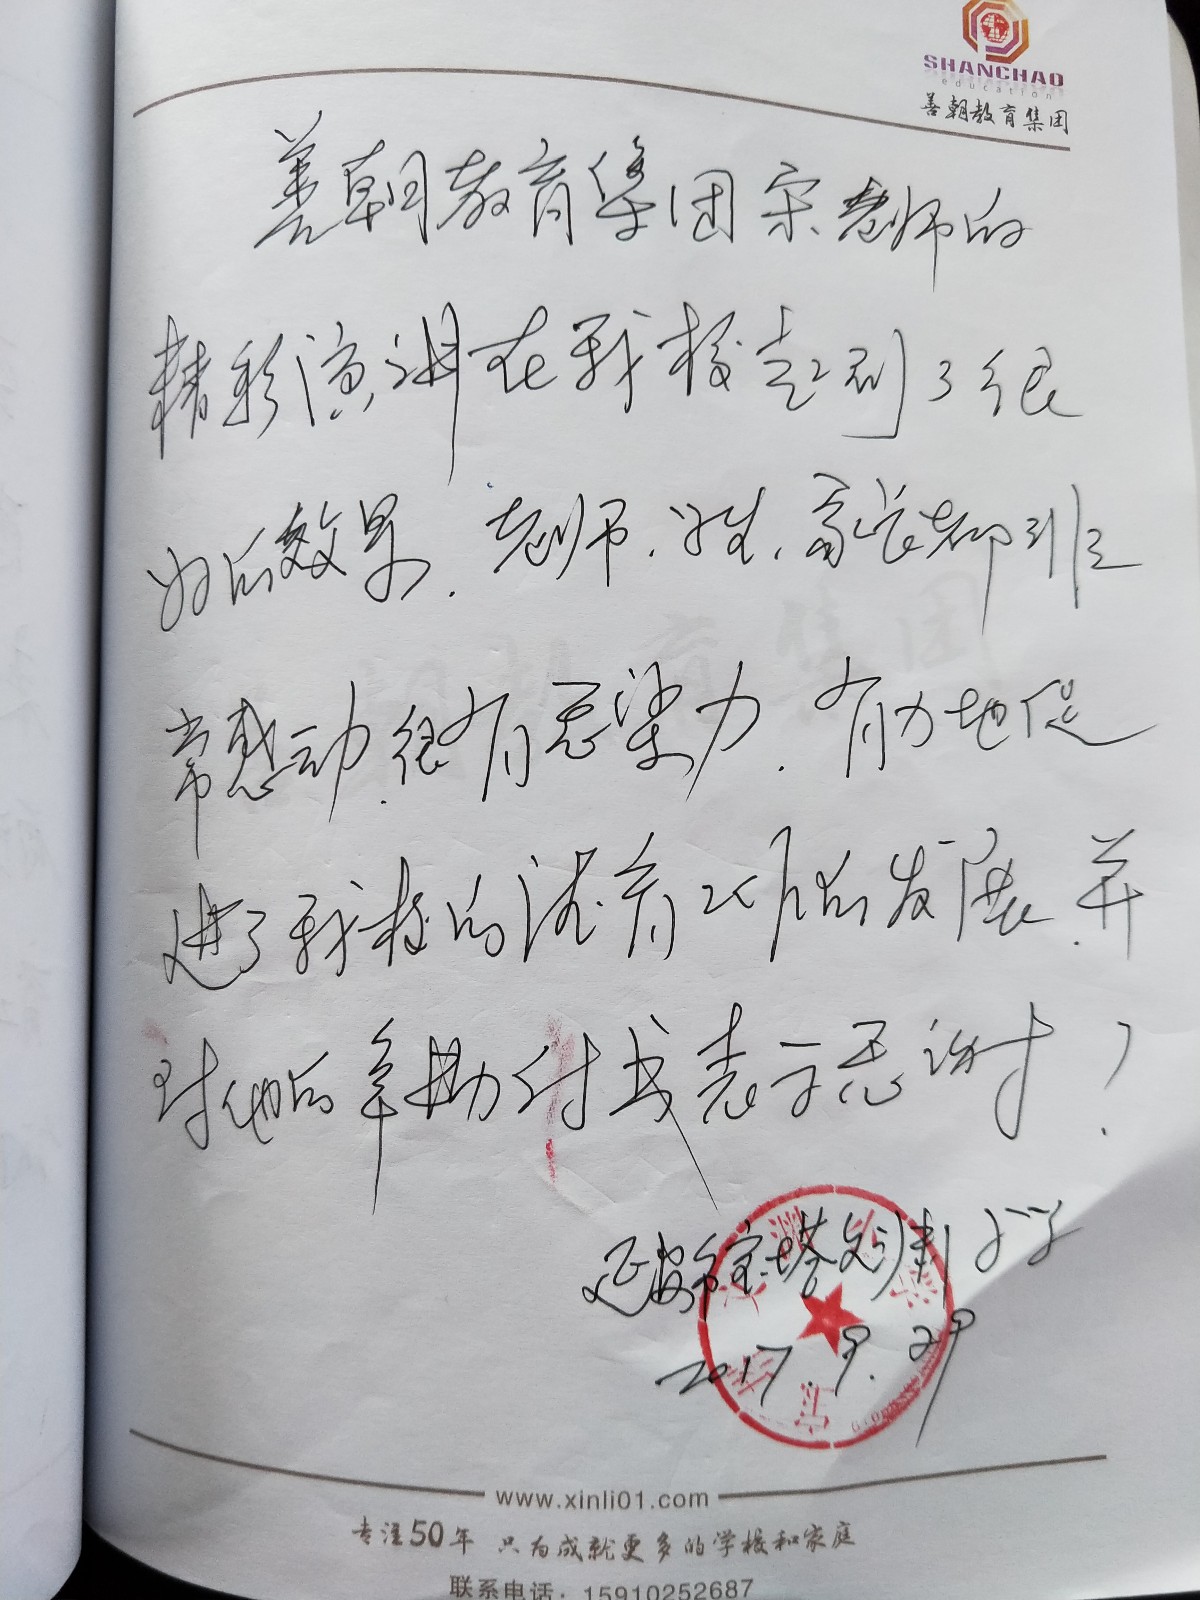 SHANCHAO
education
善朝教育集团
善朝教育集团宋老师的
精彩演讲在我校起到了很
好的效果.老师.学生.家长都非
常感动.很有感染力.有力地促
进了我校的德育工作的发展.并
对他的辛勤付出表示感谢!
延安市宝塔区川口中学
2017.9.29
www.xinli01.com
专注50年 只为成就更多的学校和家庭
联系电话：15910252687